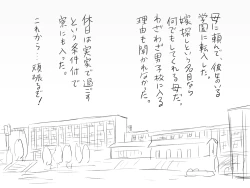 母に頼んで、彼のいる
学園に転入した。
嫁探しという名目なら
何でもしてくれる母だ。
わざわざ男子校に入る
理由も聞かれなかった。
休日は実家で過ごす
という条件付で
寮にも入った。
これから…頑張るぞ!